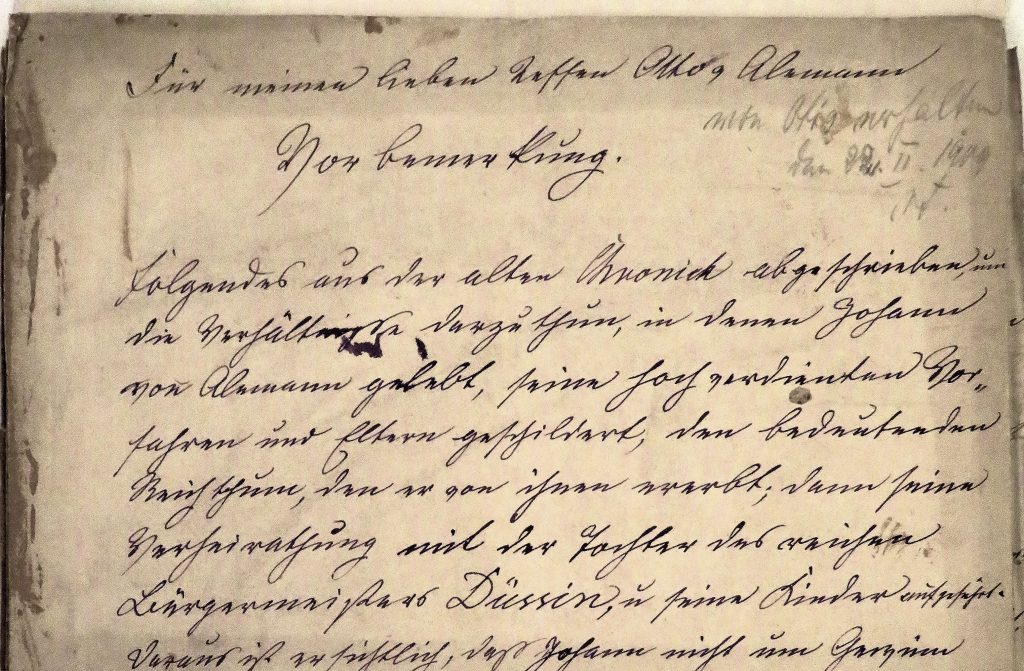 Für meinen lieben Neffen Otto v Alemann
erhalten
den 22. II. 1909
Vorbemerkung.
Folgendes aus der alten Chronick abgeschrieben, um
die Verhältnisse darzuthun, in denen Johann
von Alemann gelebt, seine hochverdienten Vor-
fahren und Eltern geschildert, den bedeutenden
Reichthum, den er von ihnen ererbt; dann seine
Verheirathung mit der Tochter des reichen
Bürgermeisters Düssin, u seine Kinder aufgeführt.
Daraus ist ersichtlich, daß Johann nicht um Gewinn